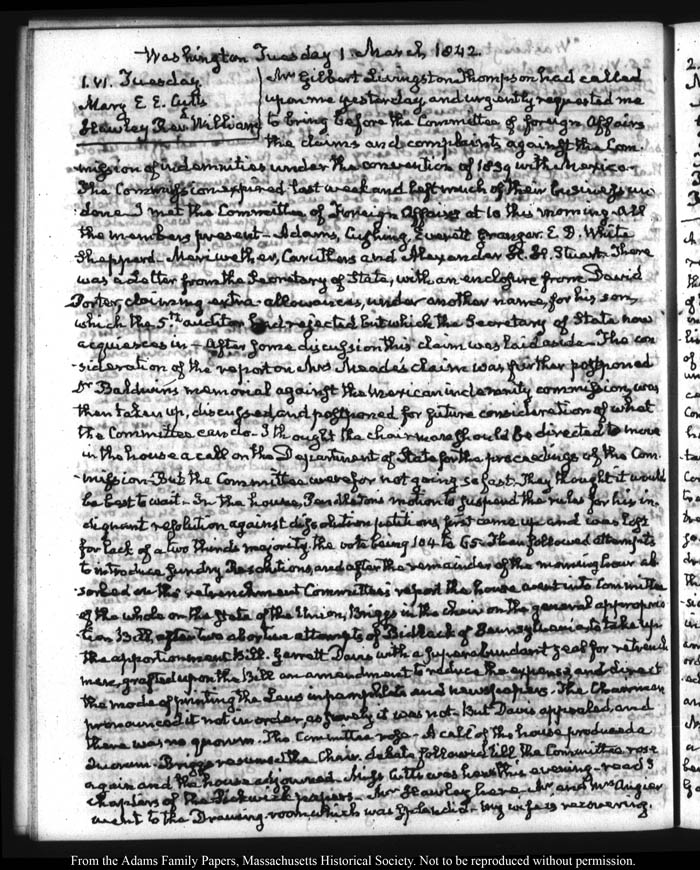 Washington Tuesday 1. March 1842.
1. VI. Tuesday
Mary E. E. Cutts
Hawley Revd. William
Mr Gilbert Livingston Thompson had called
upon me yesterday, and urgently requested me
to bring before the Committee of foreign Affairs
the claims and complaints against the Com-
mission of indemnities under the convention of 1839 with Mexico.
The Commission expired last week and left much of their business un
done. I met the Committee of Foreign Affairs at 10 this morning. All
the members present. Adams, Cushing, Everett Granger. E. D. White
Sheppard. Meriwether, Caruthers and Alexander H. H. Stuart. There
was a Letter from the Secretary of State, with an enclosure from David
Porter, claiming extra allowances, under another name, for his son,
which the 5th auditor had rejected but which the Secretary of State now
acquiesces in. After some discussion this claim was laid aside. The con
-sideration of the report on Mrs Meade's claim was further postponed
Dr Baldwin's memorial against the Mexican indemnity commission, was
then taken up, discussed, and postponed for future consideration of what
the Committee can do. I thought the chairman should be directed to move
in the house a call on the Department of State for the proceedings of the Com
-mission. But the Committee were for not going so fast. They thought it would
be best to wait. In the house, Pendleton's motion to suspend the rules for his in-
dignant resolution against dissolution petitions, first came up and was lost
for lack of a two thirds majority, the vote being 104 to 65. Then followed attempts
to introduce sundry Resolutions, and after the remainder of the morning hour ab
sorbed on the retrenchment Committee's report the house went into Committee
of the whole on the State of the Union, Briggs in the chair on the general appropria
tion Bill, after two abortive attempts of Bidlack of Pennsylvania to take up
the apportionment Bill. Garrett Davis with a superabundant zeal for retrench
ment, grafted upon the Bill an amendment to reduce the expense, and direct
the mode of printing the Laws in pamphlets and newspapers. The Chairman
pronounced it not in order, as surely it was not. But Davis appealed, and
there was no quorum. The Committee rose. A call of the house produced a
Quorum. Briggs resumed the Chair. debate followed till the Committee rose
again and the house adjourned. Miss Cutts was here this evening. read 3
chapters of the Pickwick papers. Mr Hawley here. Mr and Mrs Angier
went to the Drawing room which was splendid. My wife is recovering.
From the Adams Family Papers, Massachusetts Historical Society. Not to be reproduced without permission.